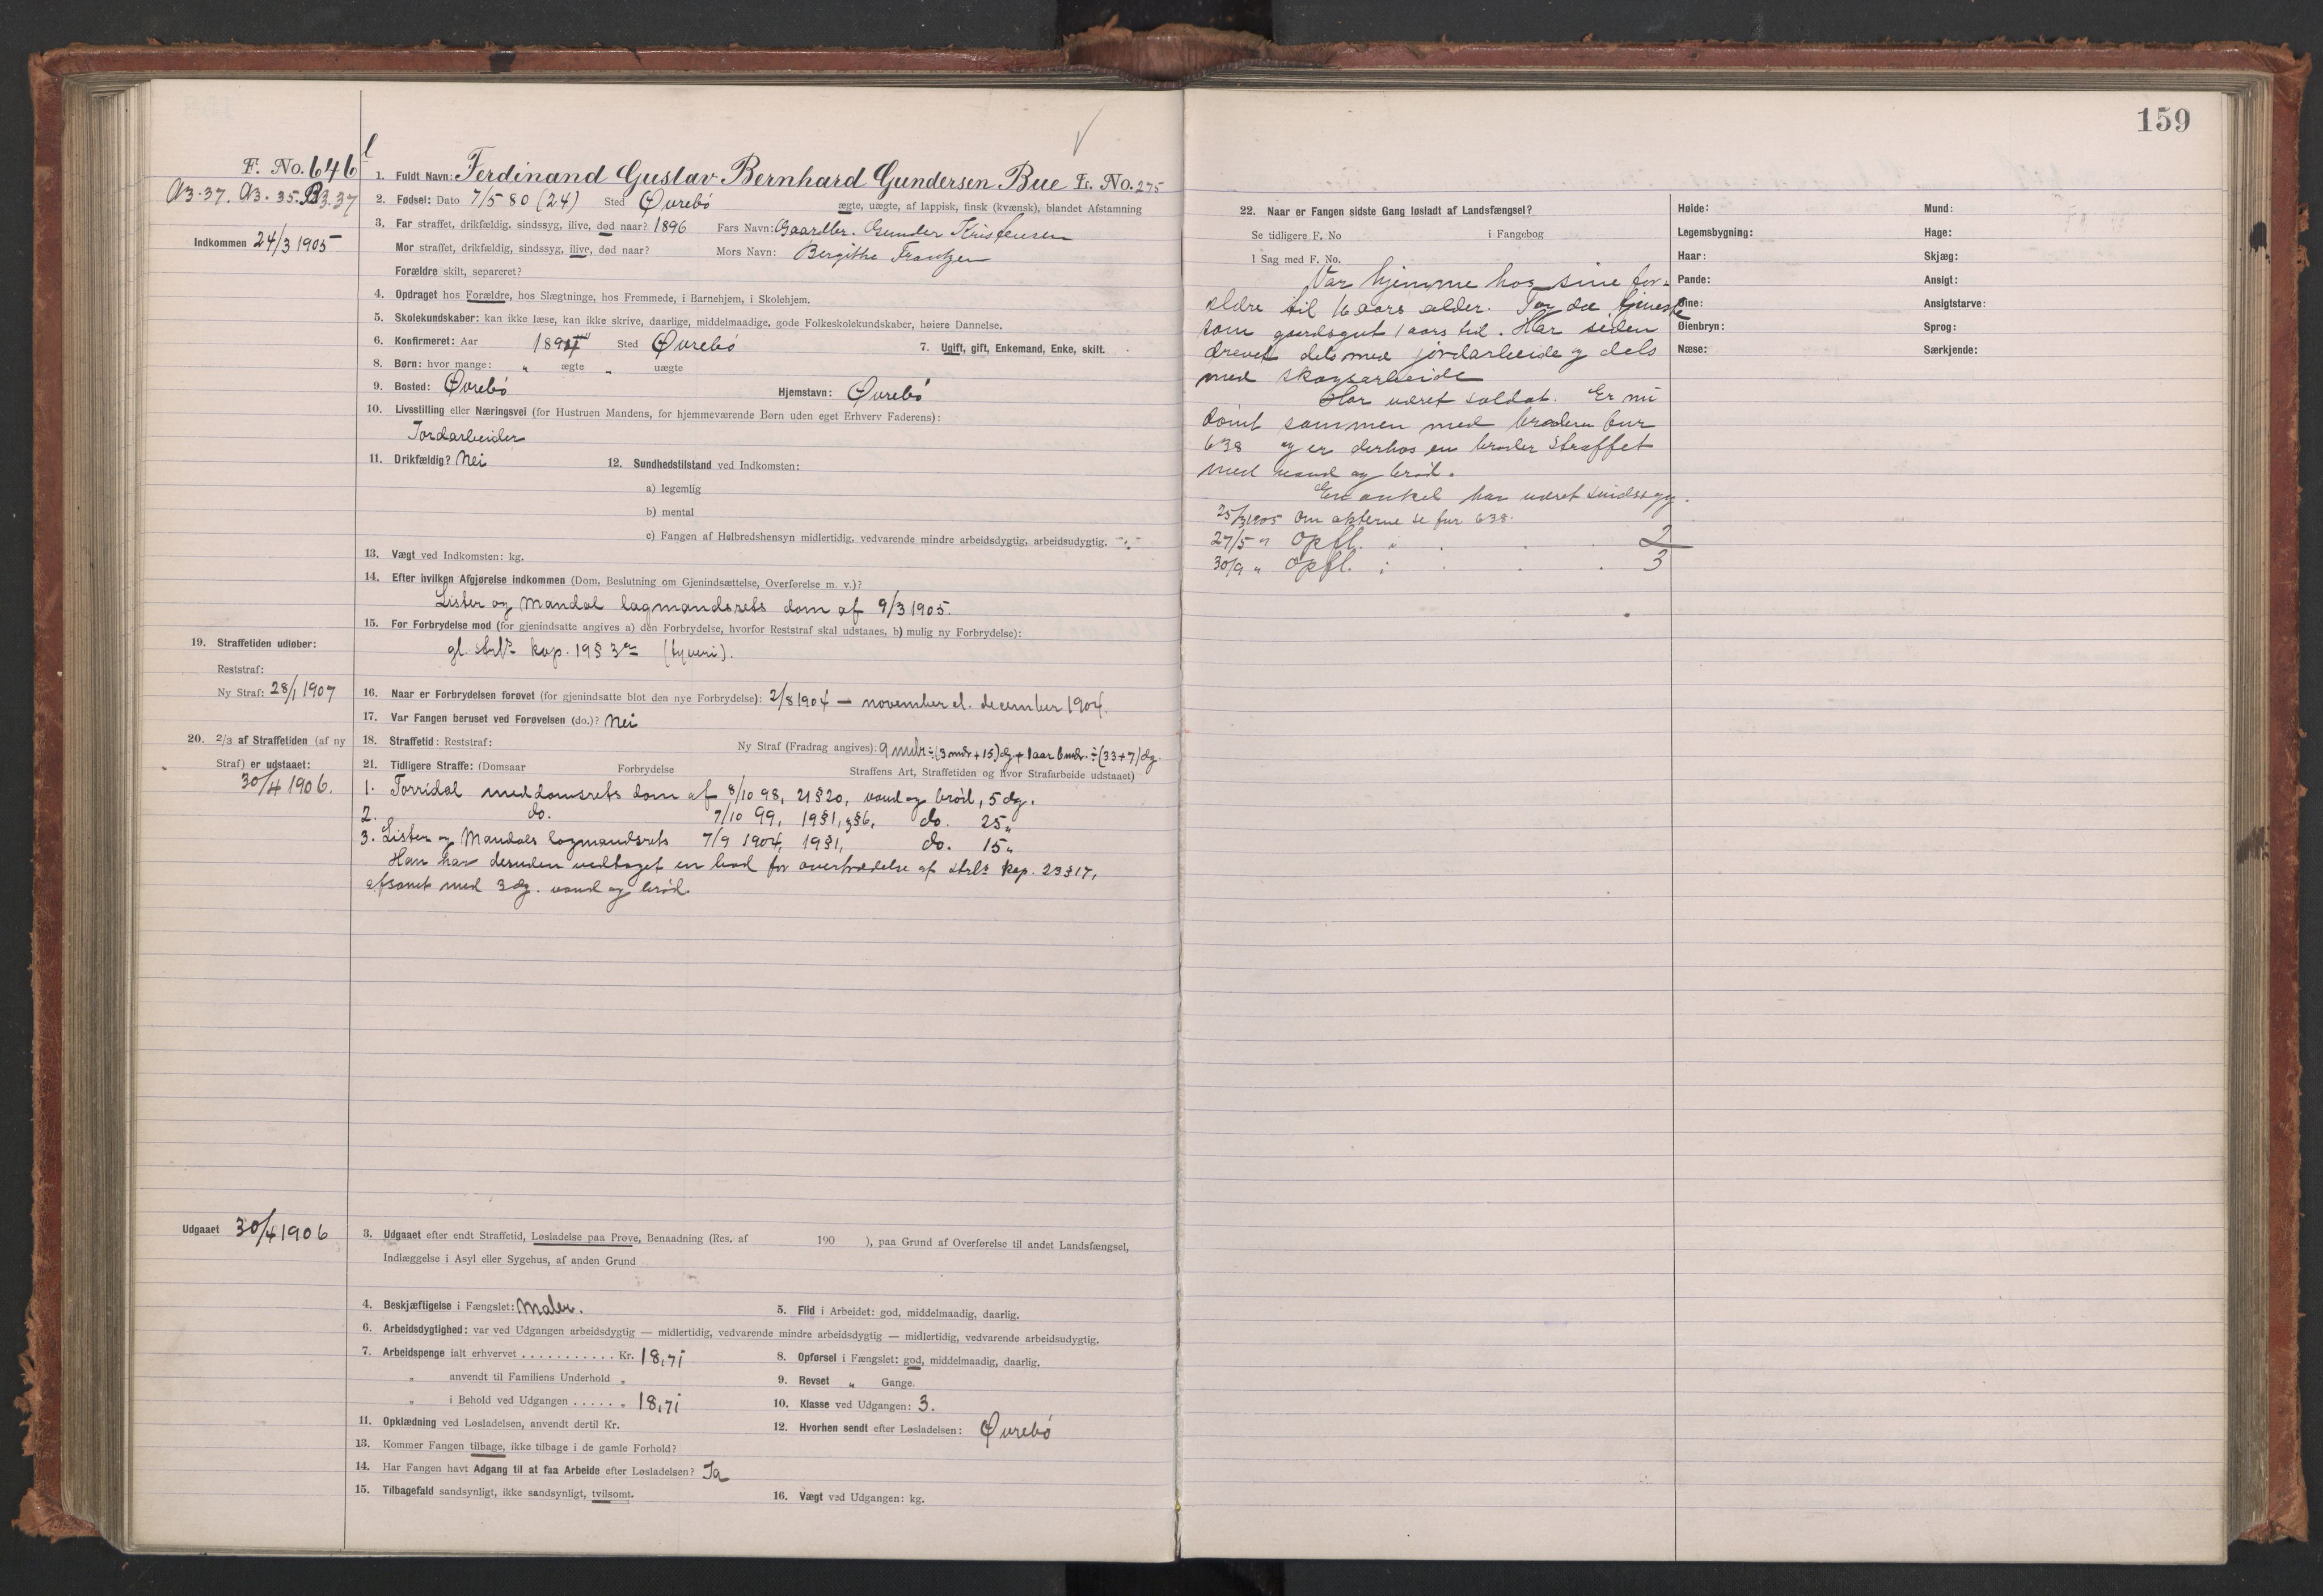 159
F. No. 646
A3.37. A3.35. B3.37
1. Fuldt Navn: Ferdinand Gustav Bernhard Gundersen Bue Is. No. 275
2. Fødsel: Dato 7/5 80 (24) Sted Øvrebø ægte, uægte, af lappisk, finsk (kvænsk), blandet Afstamning
Indkommen 24/3 1905
3. Far straffet, drikfældig, sindssyg, ilive, død naar? 1896 Fars Navn: Gaardbr. Gunder Kristensen
Mor straffet, drikfældig, sindssyg, ilive, død naar? Mors Navn: Bergithe Frantzen
Forældre skilt, separeret?
4. Opdraget hos Forældre, hos Slægtninge, hos Fremmede, i Barnehjem, i Skolehjem.
5. Skolekundskaber: kan ikke læse, kan ikke skrive, daarlige, middelmaadige, gode Folkeskolekundskaber, høiere Dannelse.
6. Konfirmeret: Aar Sted Øvrebø 7. Ugift, gift, Enkemand, Enke, skilt.
8. Børn: hvor mange: " ægte " uægte
9. Bosted: Øvrebø Hjemstavn: Øvrebø
10. Livsstilling eller Næringsvei (for Hustruen Mandens, for hjemmeværende Børn uden eget Erhverv Faderens):
Jordarbeider
11. Drikfældig? Nei 12. Sundhedstilstand ved Indkomsten:
a) legemlig
b) mental
c) Fangen af Helbredshensyn midlertidig, vedvarende mindre arbeidsdygtig, arbeidsudygtig.
13. Vægt ved Indkomsten: kg.
14. Efter hvilken Afgjørelse indkommen (Dom, Beslutning om Gjenindsættelse, Overførelse m. v.)?
Lister og Mandal lagmandsrets dom af 9/3 1905.
15. For Forbrydelse mod (for gjenindsatte angives a) den Forbrydelse, hvorfor Reststraf skal udstaaes, b) mulig ny Forbrydelse):
gl. strl. kap. 19 § 3 (tyveri).
19. Straffetiden udløber:
Reststraf:
Ny Straf: 28/1 1907
16. Naar er Forbrydelsen forøvet (for gjenindsatte blot den nye Forbrydelse): 2/8 1904 — november el. december 1904.
17. Var Fangen beruset ved Forøvelsen (do.)? Nei
20. 2/3 af Straffetiden (af ny
Straf) er udstaaet:
30/4 1906.
18. Straffetid: Reststraf: Ny Straf (Fradrag angives): 9 mdr ÷ (3 mdr + 15) dg + 1 aar 6 mdr. ÷ (33 + 7) dg.
21. Tidligere Straffe: (Domsaar Forbrydelse Straffens Art, Straffetiden og hvor Strafarbeide udstaaet)
1. Torridal meddomsrets dom af 8/10 98, 21 § 20, vand og brød, 5 dg.
2. do. 7/10 99, 19 § 1, § 6, do. 25 "
3. Lister og Mandals lagmandsrets 7/9 1904, 19 § 1, do. 15 "
Han har desuden vedtaget en bod for overtrædelse af strl. kap. 23 § 17,
afsonet med 3 dg. vand og brød.
Udgaaet 30/4 1906
3. Udgaaet efter endt Straffetid, Løsladelse paa Prøve, Benaadning (Res. af 190 ), paa Grund af Overførelse til andet Landsfængsel,
Indlæggelse i Asyl eller Sygehus, af anden Grund
4. Beskjæftigelse i Fængslet: Maler. 5. Flid i Arbeidet: god, middelmaadig, daarlig.
6. Arbeidsdygtighed: var ved Udgangen arbeidsdygtig — midlertidig, vedvarende mindre arbeidsdygtig — midlertidig, vedvarende arbeidsudygtig.
7. Arbeidspenge ialt erhvervet . . . . . . . . . . . Kr. 18,71 8. Opførsel i Fængslet: god, middelmaadig, daarlig.
" anvendt til Familiens Underhold " 9. Revset " Gange.
" i Behold ved Udgangen . . . . . . " 18,71 10. Klasse ved Udgangen: 3.
11. Opklædning ved Løsladelsen, anvendt dertil Kr. 12. Hvorhen sendt efter Løsladelsen: Øvrebø
13. Kommer Fangen tilbage, ikke tilbage i de gamle Forhold?
14. Har Fangen havt Adgang til at faa Arbeide efter Løsladelsen? Ja
15. Tilbagefald sandsynligt, ikke sandsynligt, tvilsomt. 16. Vægt ved Udgangen: kg.
22. Naar er Fangen sidste Gang løsladt af Landsfængsel?
Se tidligere F. No i Fangebog
I Sag med F. No.
Var hjemme hos sine for-
ældre til 16 aars alder. Tog da tjeneste
som gaardsgut 1 aars tid. Har siden
drevet dels med jordarbeide og dels
med skogsarbeide
Har været soldat. Er nu
dømt sammen med broderen fur
638 og er derhos en broder straffet
med vand og brød.
En onkel har været sindssyg.
25/3 1905 Om akterne se fur 638.
27/5 " Opfl. i . . . 2
30/9 " Opfl. i . . . 3
Høide: Mund:
Legemsbygning: Hage:
Haar: Skjæg:
Pande: Ansigt:
Øine: Ansigtstarve:
Øienbryn: Sprog:
Næse: Særkjende: